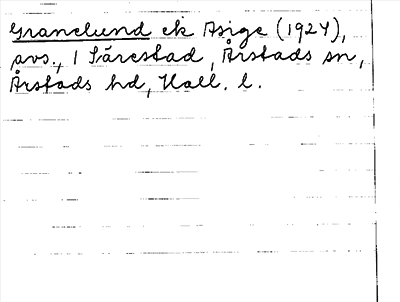 Granelund ek Asige (1924),
avs., 1 Särestad, Årstads sn,
Årstads hd, Hall. l.